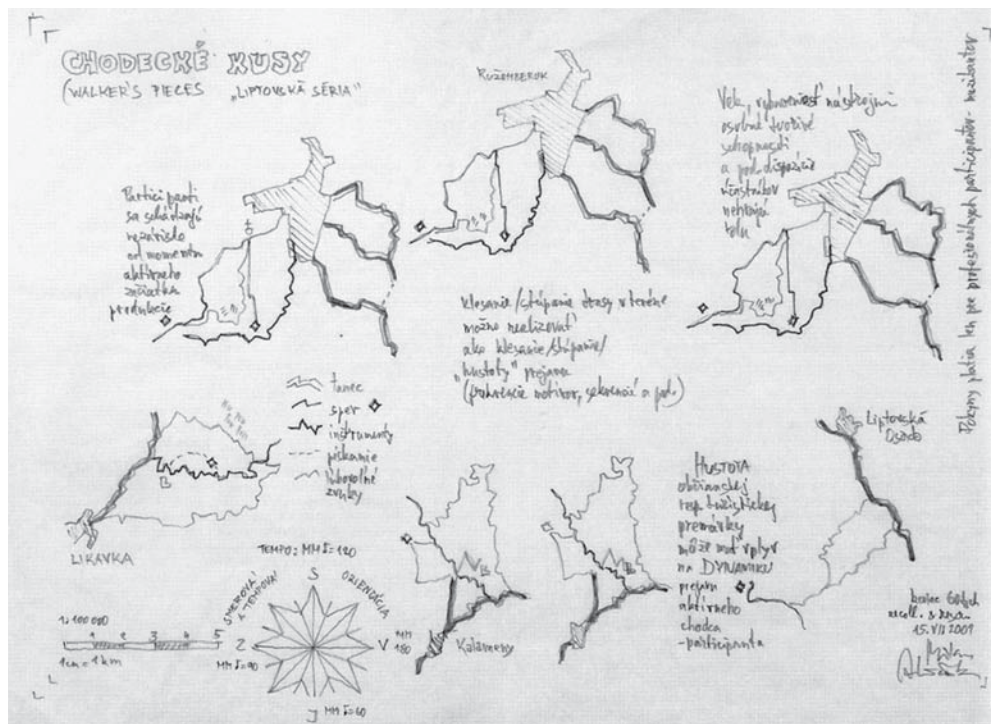 CHODECKÉ KUSY
(WALKER'S PIECES „LIPTOVSKÁ SÉRIA"
RUŽOMBEROK
Participanti
sa schádzajú
nezávisle
od momentu
aktívneho
začiatku
produkcie
Vek, vybavenosť nástrojmi
osobné tvorivé
schopnosti
a pod. dispozície
účastníkov
nehrajú
rolu
klesanie/stúpanie trasy v teréne
možno realizovať
ako klesanie/stúpanie/
„hustoty" prejavu
tanec
spev
inštrumenty
pískanie
ľubovoľné
zvuky
LIKAVKA
TEMPO: MM = 120
SMEROVÁ
TEMPOVÁ
ORIENTÁCIA
S
V
MM
180
Z
MM = 90
J MM = 60
1:100 000
1 2 3 4 5
1cm = 1km
Kalameny
HUSTOTA
občianskej
resp. turistickej
premávky
môže mať vplyv
na DYNAMIKU
prejavu
aktívneho
chodca
-participanta
Liptovská
Osada
15.VII 2001
Milan
Pokyny platia len pre profesionálnych participantov-